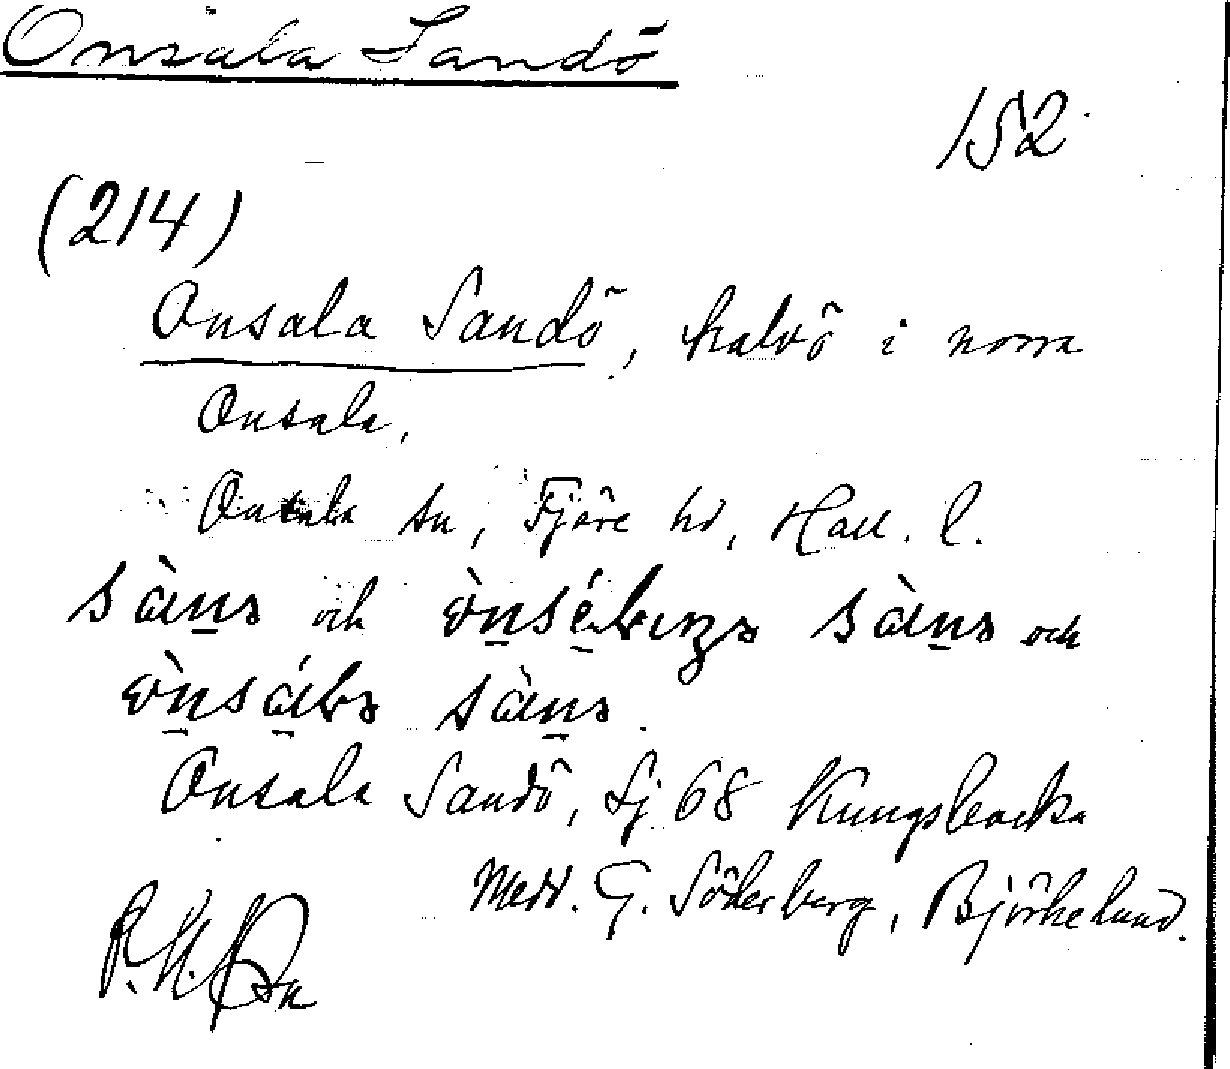 Onsala Sandö
152
(214)
Onsala Sandö, halvö i norra
Onsala,
Onsala sn, Fjäre hd, Hall. l.
sàṉə och ò̱nsélbu̱rgə sàṉə och
òṉsá̱lə sàṉə.
Onsala Sandö, Sj 68 Kungsbacka
Medd. G. Söderberg, Björkelund.